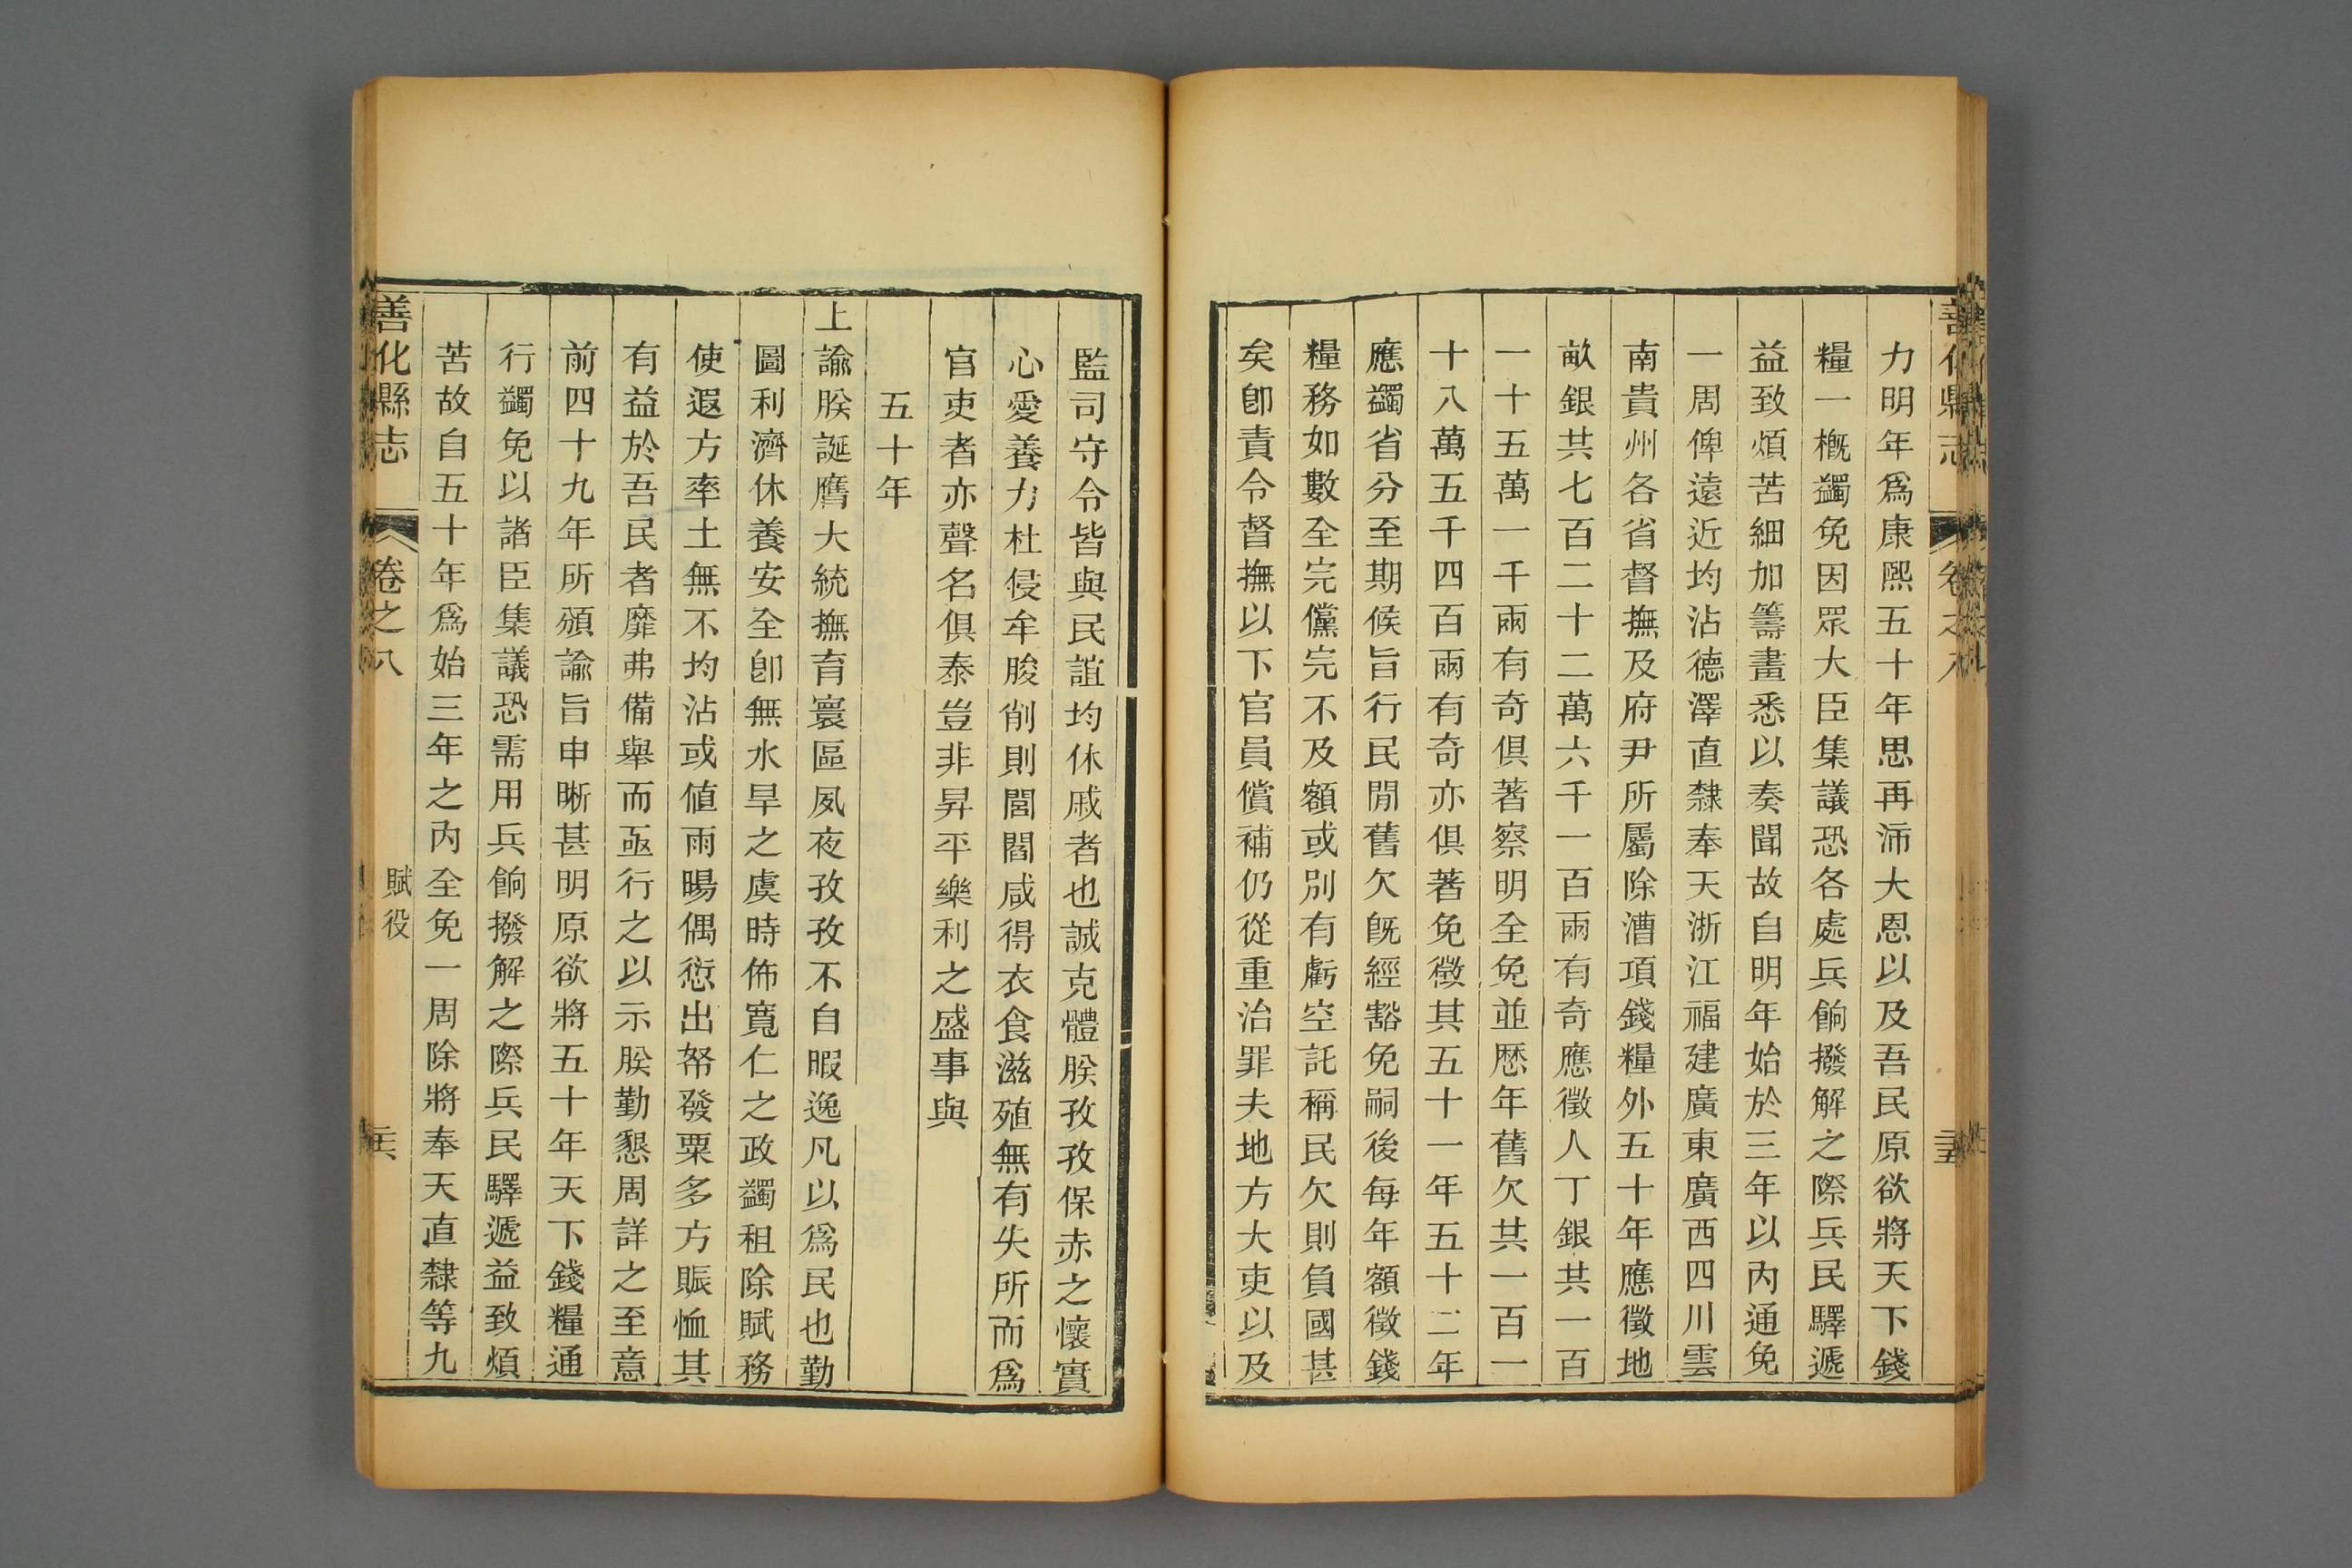 善化縣志
卷之八
力明年爲康熙五十年思再沛大恩以及吾民原欲將天下錢
糧一槪蠲免因眾大臣集議恐各處兵餉撥解之際兵民驛遞
益致煩苦細加籌畫悉以奏聞故自明年始於三年以內通免
一周俾遠近均沾德澤直隸奉天浙江福建廣東廣西四川雲
南貴州各省督撫及府尹所屬除漕項錢糧外五十年應徵地
畝銀共七百二十二萬六千一百兩有奇應徵人丁銀共一百
一十五萬一千兩有奇俱著察明全免並歷年舊欠共一百一
十八萬五千四百兩有奇亦俱著免徵其五十一年五十二年
應蠲省分至期候旨行民閒舊欠旣經豁免嗣後每年額徵錢
糧務如數全完儻完不及額或別有虧空託稱民欠則負國甚
矣卽責令督撫以下官員償補仍從重治罪夫地方大吏以及
監司守令皆與民誼均休戚者也誠克體朕孜孜保赤之懷實
心愛養力杜侵牟朘削則閭閻咸得衣食滋殖無有失所而爲
官吏者亦聲名俱泰豈非昇平樂利之盛事與
五十年
上諭朕誕膺大統撫育寰區夙夜孜孜不自暇逸凡以爲民也勤
圖利濟休養安全卽無水旱之虞時佈寬仁之政蠲租除賦務
使遐方率土無不均沾或値雨暘偶愆出帑發粟多方賑恤其
有益於吾民者靡弗備舉而亟行之以示朕勤懇周詳之至意
前四十九年所頒諭旨申晰甚明原欲將五十年天下錢糧通
行蠲免以諸臣集議恐需用兵餉撥解之際兵民驛遞益致煩
苦故自五十年爲始三年之內全免一周除將奉天直隸等九
善化縣志
卷之八
賦役